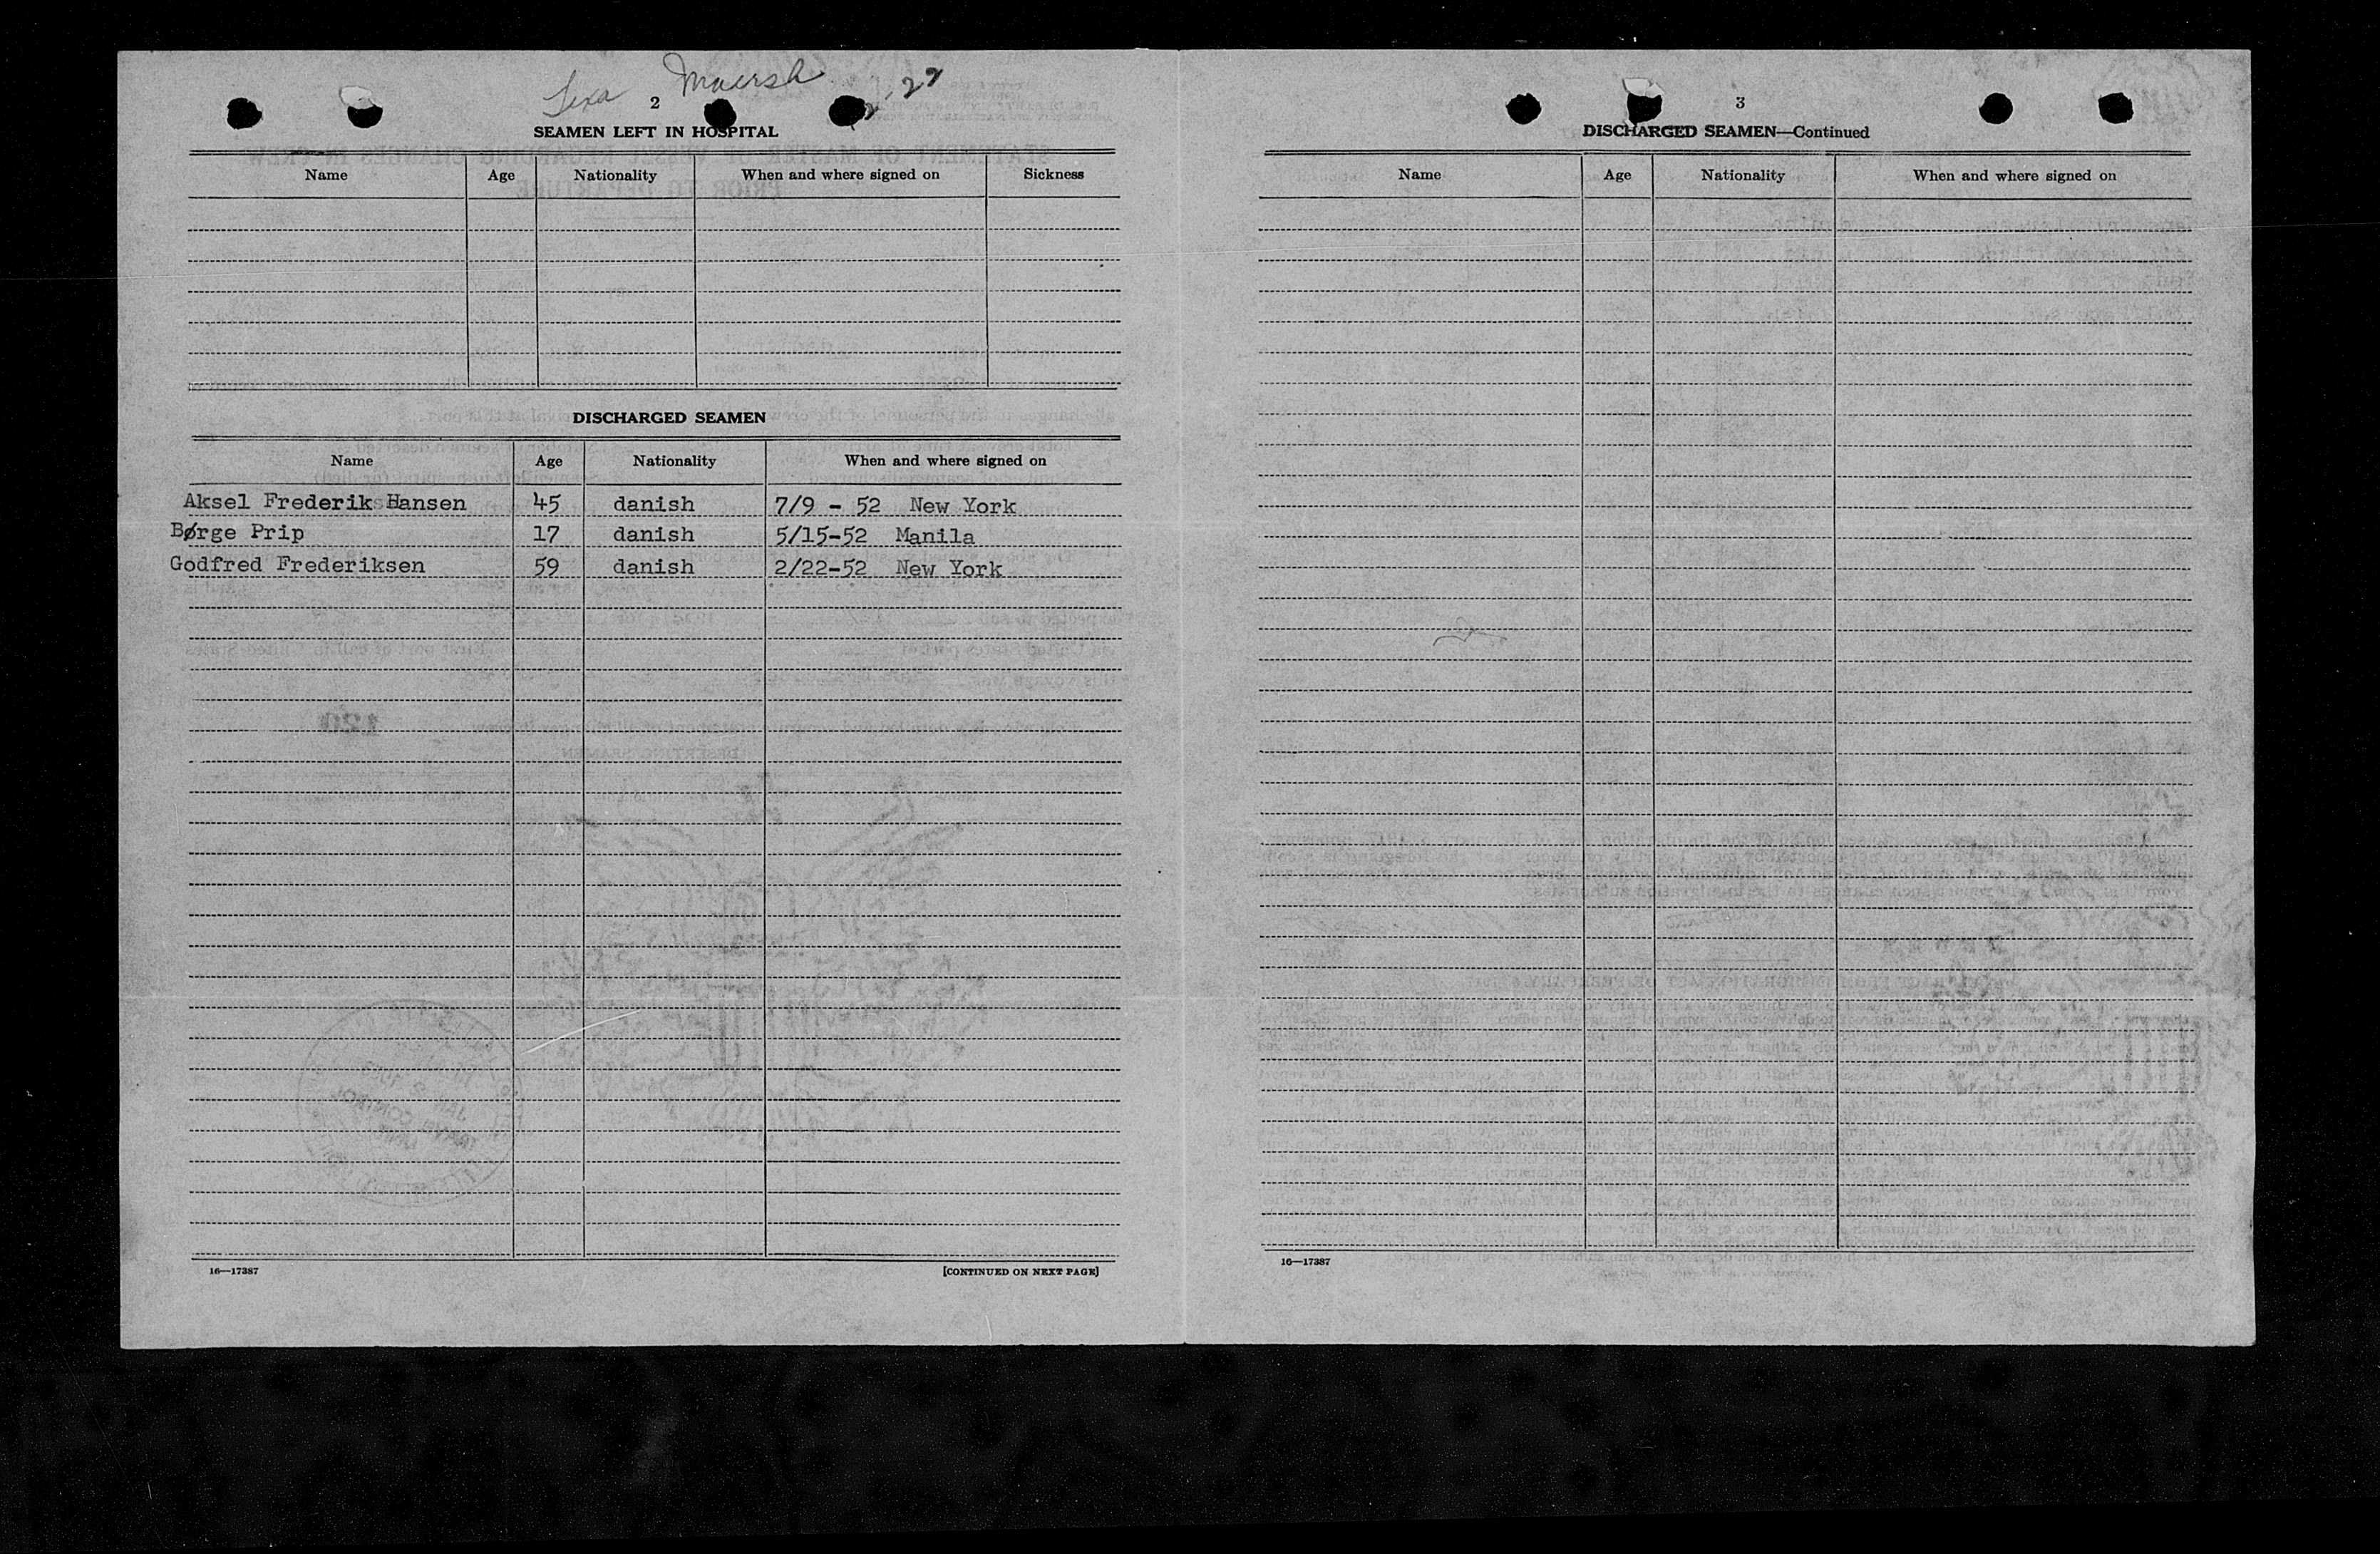 Maersk
2
SEAMEN LEFT IN HOSPITAL
Name Age Nationality When and where signed on Sickness
DISCHARGED SEAMEN
Name Age Nationality When and where signed on
Aksel Frederik Hansen 45 danish 7/9 - 52 New York
Børge Prip 17 danish 5/15-52 Manila
Godfred Frederiksen 59 danish 2/22-52 New York
16—17387 [CONTINUED ON NEXT PAGE]
3
DISCHARGED SEAMEN—Continued
Name Age Nationality When and where signed on
16—17387